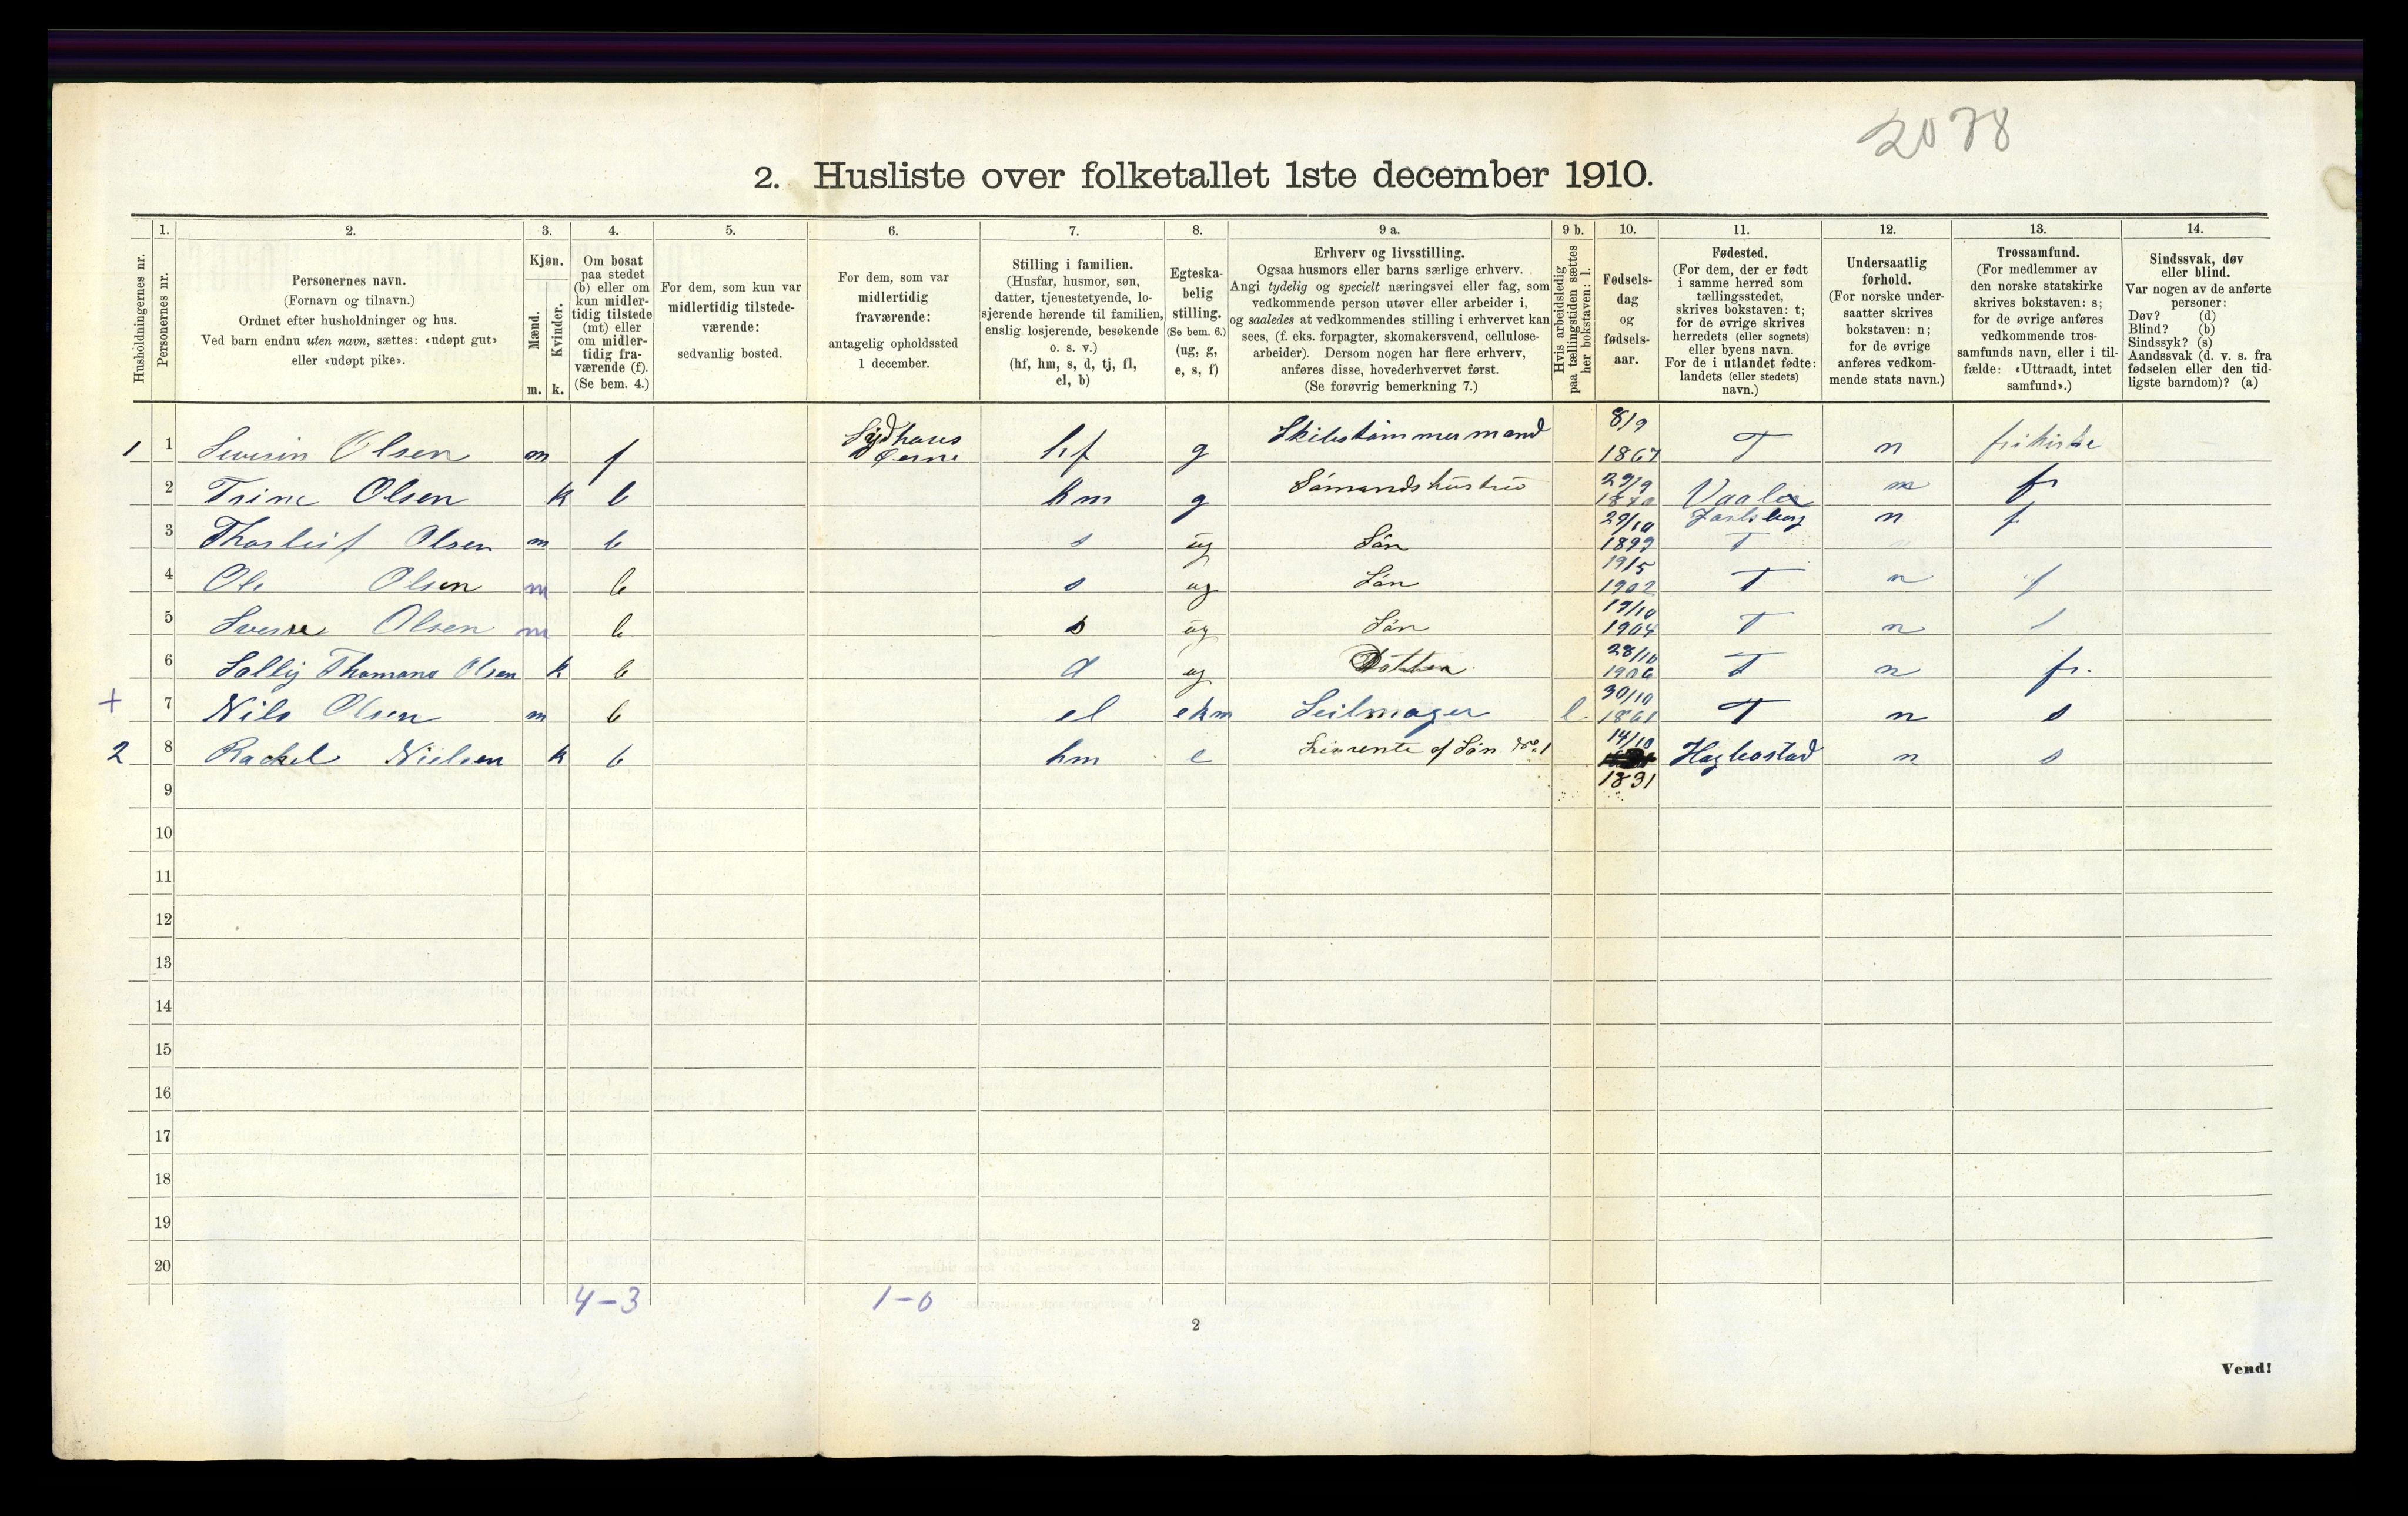 2078
2. Husliste over folketallet 1ste december 1910.
Husholdningernes nr.
1. Personernes nr.
2. Personernes navn. (Fornavn og tilnavn.) Ordnet efter husholdninger og hus. Ved barn endnu uten navn, sættes: «udøpt gut» eller «udøpt pike».
3. Kjøn. Mænd. m. Kvinder. k.
4. Om bosat paa stedet (b) eller om kun midlertidig tilstede (mt) eller om midlertidig fraværende (f). (Se bem. 4.)
5. For dem, som kun var midlertidig tilstedeværende: sedvanlig bosted.
6. For dem, som var midlertidig fraværende: antagelig opholdssted 1 december.
7. Stilling i familien. (Husfar, husmor, søn, datter, tjenestetyende, losjerende hørende til familien, enslig losjerende, besøkende o. s. v.) (hf, hm, s, d, tj, fl, el, b)
8. Egteskabelig stilling. (Se bem. 6.) (ug, g, e, s, f)
9 a. Erhverv og livsstilling. Ogsaa husmors eller barns særlige erhverv. Angi tydelig og specielt næringsvei eller fag, som vedkommende person utøver eller arbeider i, og saaledes at vedkommendes stilling i erhvervet kan sees, (f. eks. forpagter, skomakersvend, cellulosearbeider). Dersom nogen har flere erhverv, anføres disse, hovederhvervet først. (Se forøvrig bemerkning 7.)
9 b. Hvis arbeidsledig paa tællingstiden sættes her bokstaven: l.
10. Fødselsdag og fødselsaar.
11. Fødested. (For dem, der er født i samme herred som tællingsstedet, skrives bokstaven: t; for de øvrige skrives herredets (eller sognets) eller byens navn. For de i utlandet fødte: landets (eller stedets) navn.)
12. Undersaatlig forhold. (For norske undersaatter skrives bokstaven: n; for de øvrige anføres vedkommende stats navn.)
13. Trossamfund. (For medlemmer av den norske statskirke skrives bokstaven: s; for de øvrige anføres vedkommende trossamfunds navn, eller i tilfælde: «Uttraadt, intet samfund».)
14. Sindssvak, døv eller blind. Var nogen av de anførte personer: Døv? (d) Blind? (b) Sindssyk? (s) Aandssvak (d. v. s. fra fødselen eller den tidligste barndom)? (a)
1 1 Severin Olsen m f Sydhavs Øerne hf g Skibstømmermand 8/9 1867 T n frikirke
2 Trine Olsen k b hm g Sømandshustru 29/9 Vaale Jarlsberg n fr
3 Thorleif Olsen m b s ug Søn 29/10 1899 T n f
4 Ole Olsen m b s ug Søn 19/5 1902 T n f
5 Sverre Olsen m b s ug Søn 19/10 1904 T n
6 Solly Thomana Olsen k b d ug Datter 28/10 1906 T n fr.
+ 7 Nils Olsen m b el ekm Seilmager l. 30/10 1861 T n s
2 8 Rachel Nielsen k b hm e Livrente af Søn No 1 14/10 1831 Hægbostad n s
9
10
11
12
13
14
15
16
17
18
19
20
4-3 1-0
2
Vend!